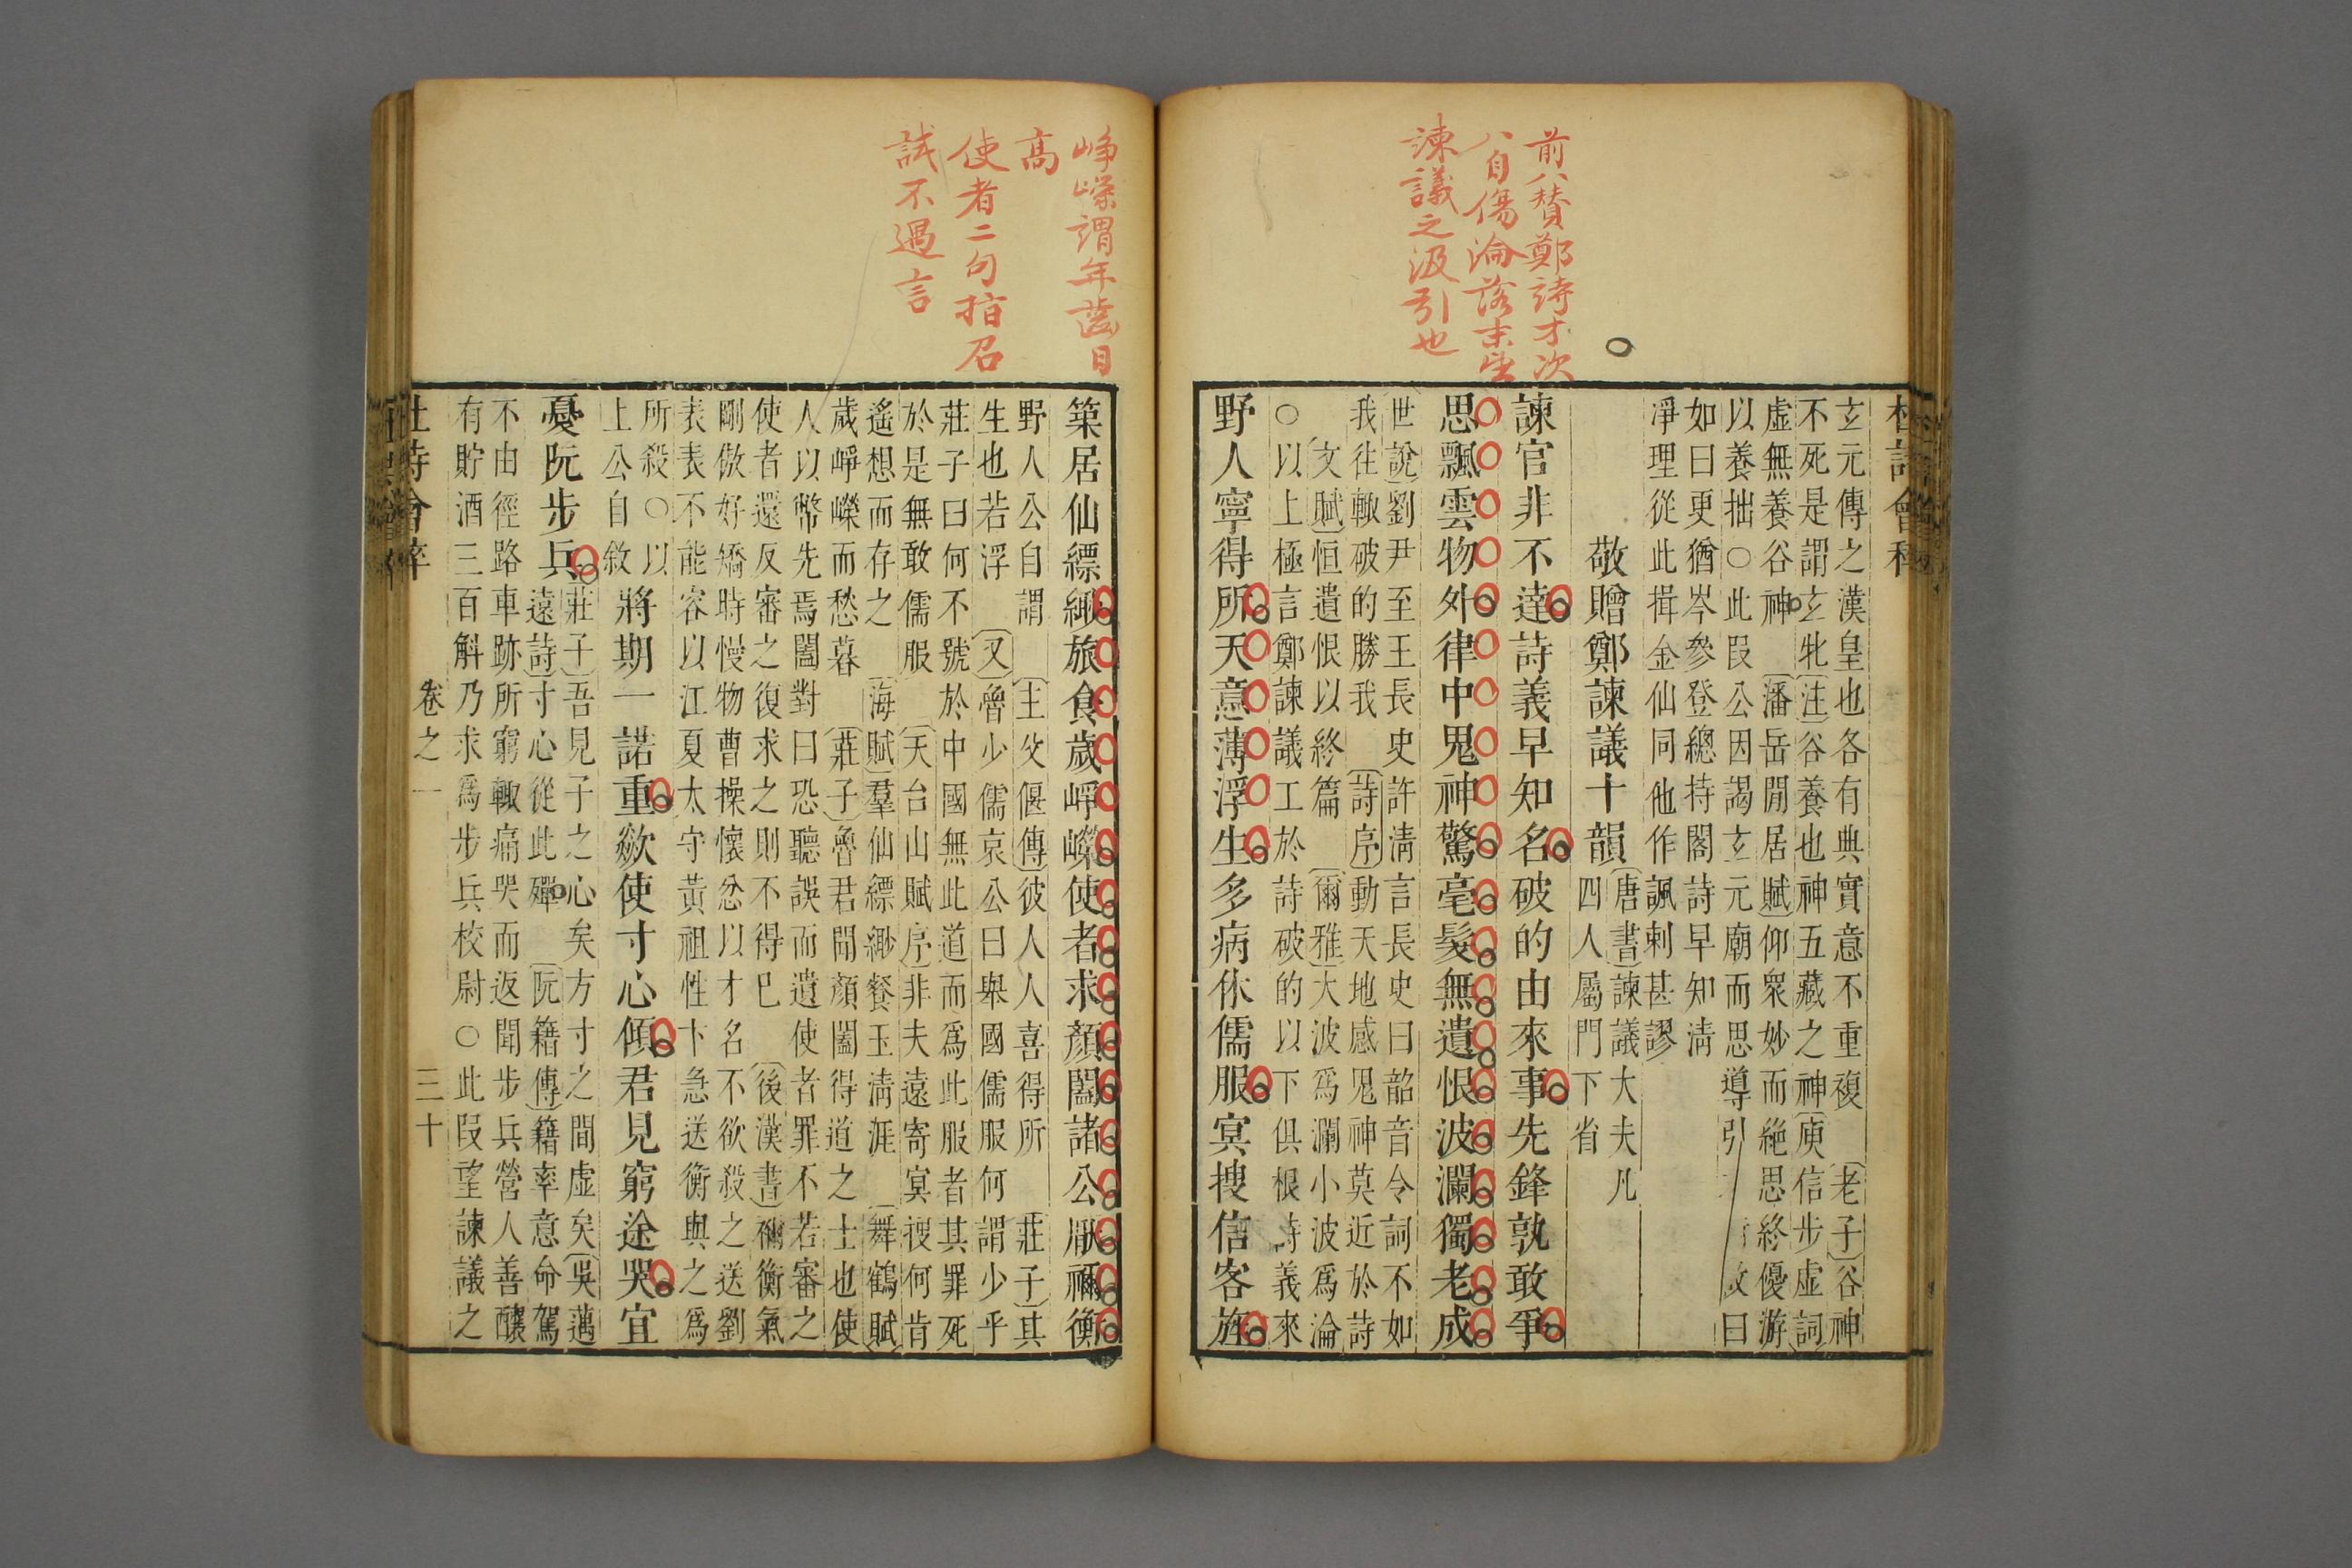 前八賛鄭詩才次
八自傷淪落末望
諫議之汲引也
杜詩會稡
玄元傳之漢皇也各有典實意不重複 〔老子〕谷神
不死是謂玄牝〔注〕谷養也神五藏之神〔庾信步虛詞〕
虛無養谷神 〔潘岳閒居賦〕仰衆妙而絶思終優游
以養拙○此叚公因謁玄元廟而思導引
如曰更猶岑參登總持閣詩早知清
凈理從此揖金仙同他作諷刺甚謬
敬贈鄭諫議十韻〔唐書〕諫議大夫凡
四人屬門下省
諫官非不達詩義早知名破的由來事先鋒孰敢爭
思飄雲物外律中鬼神驚毫髮無遺恨波瀾獨老成
〔世說〕劉尹至王長史許清言長史曰韶音令詞不如
我往輙破的勝我 〔詩序〕動天地感鬼神莫近於詩
〔文賦〕恒遺恨以終篇 〔爾雅〕大波爲瀾小波爲淪
○以上極言鄭諫議工於詩破的以下俱根詩義來
野人寧得所天意薄浮生多病休儒服冥搜信客旌
崢嶸謂年齒日
高
使者二句指召
試不遇言
築居仙縹緲旅食歲崢嶸使者求顏闔諸公厭禰衡
野人公自謂 〔王烒偃傳〕彼人人喜得所 〔莊子〕其
生也若浮 〔又〕魯少儒哀公曰舉國儒服何謂少乎
莊子曰何不號於中國無此道而爲此服者其罪死
於是無敢儒服 〔天台山賦序〕非夫遠寄冥搜何肯
遙想而存之 〔海賦〕羣仙縹緲餐玉清涯 〔舞鶴賦〕
歲崢嶸而愁暮 〔莊子〕魯君聞顏闔得道之士也使
人以幣先焉闔對曰恐聽誤而遺使者罪不若審之
使者還反審之復求之則不得已 〔後漢書〕禰衡氣
剛傲好矯時慢物曹操懷忿以才名不欲殺之送劉
表表不能容以江夏太守黃祖性卞急送衡與之爲
所殺○以
上公自敘
將期一諾重歘使寸心傾君見窮途哭宜
憂阮步兵〔莊子〕吾見子之心矣方寸之間虛矣〔吳邁
遠詩〕寸心從此殫 〔阮籍傳〕籍率意命駕
不由徑路車跡所窮輙痛哭而返聞步兵營人善釀
有貯酒三百斛乃求爲步兵校尉○此叚望諫議之
杜詩會稡 卷之一 三十